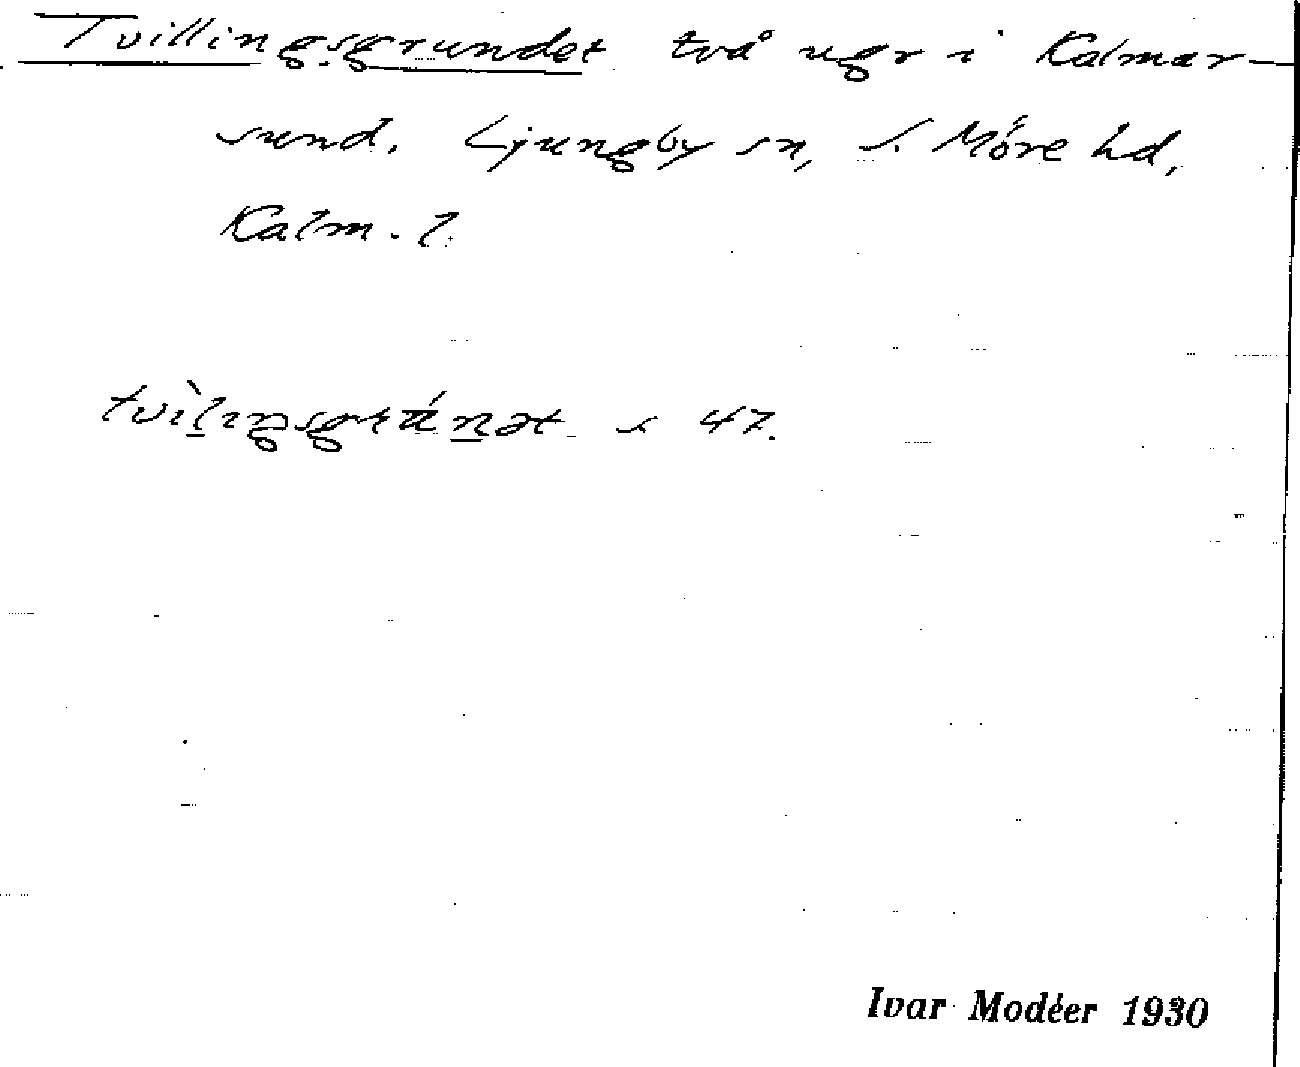 Tvillingsgrundet två ugr i Kalmar-
sund. Ljungby sn, S. Möre hd,
Kalm. l.
tvìlingsgrúnət s 47.
Ivar Modéer 1930